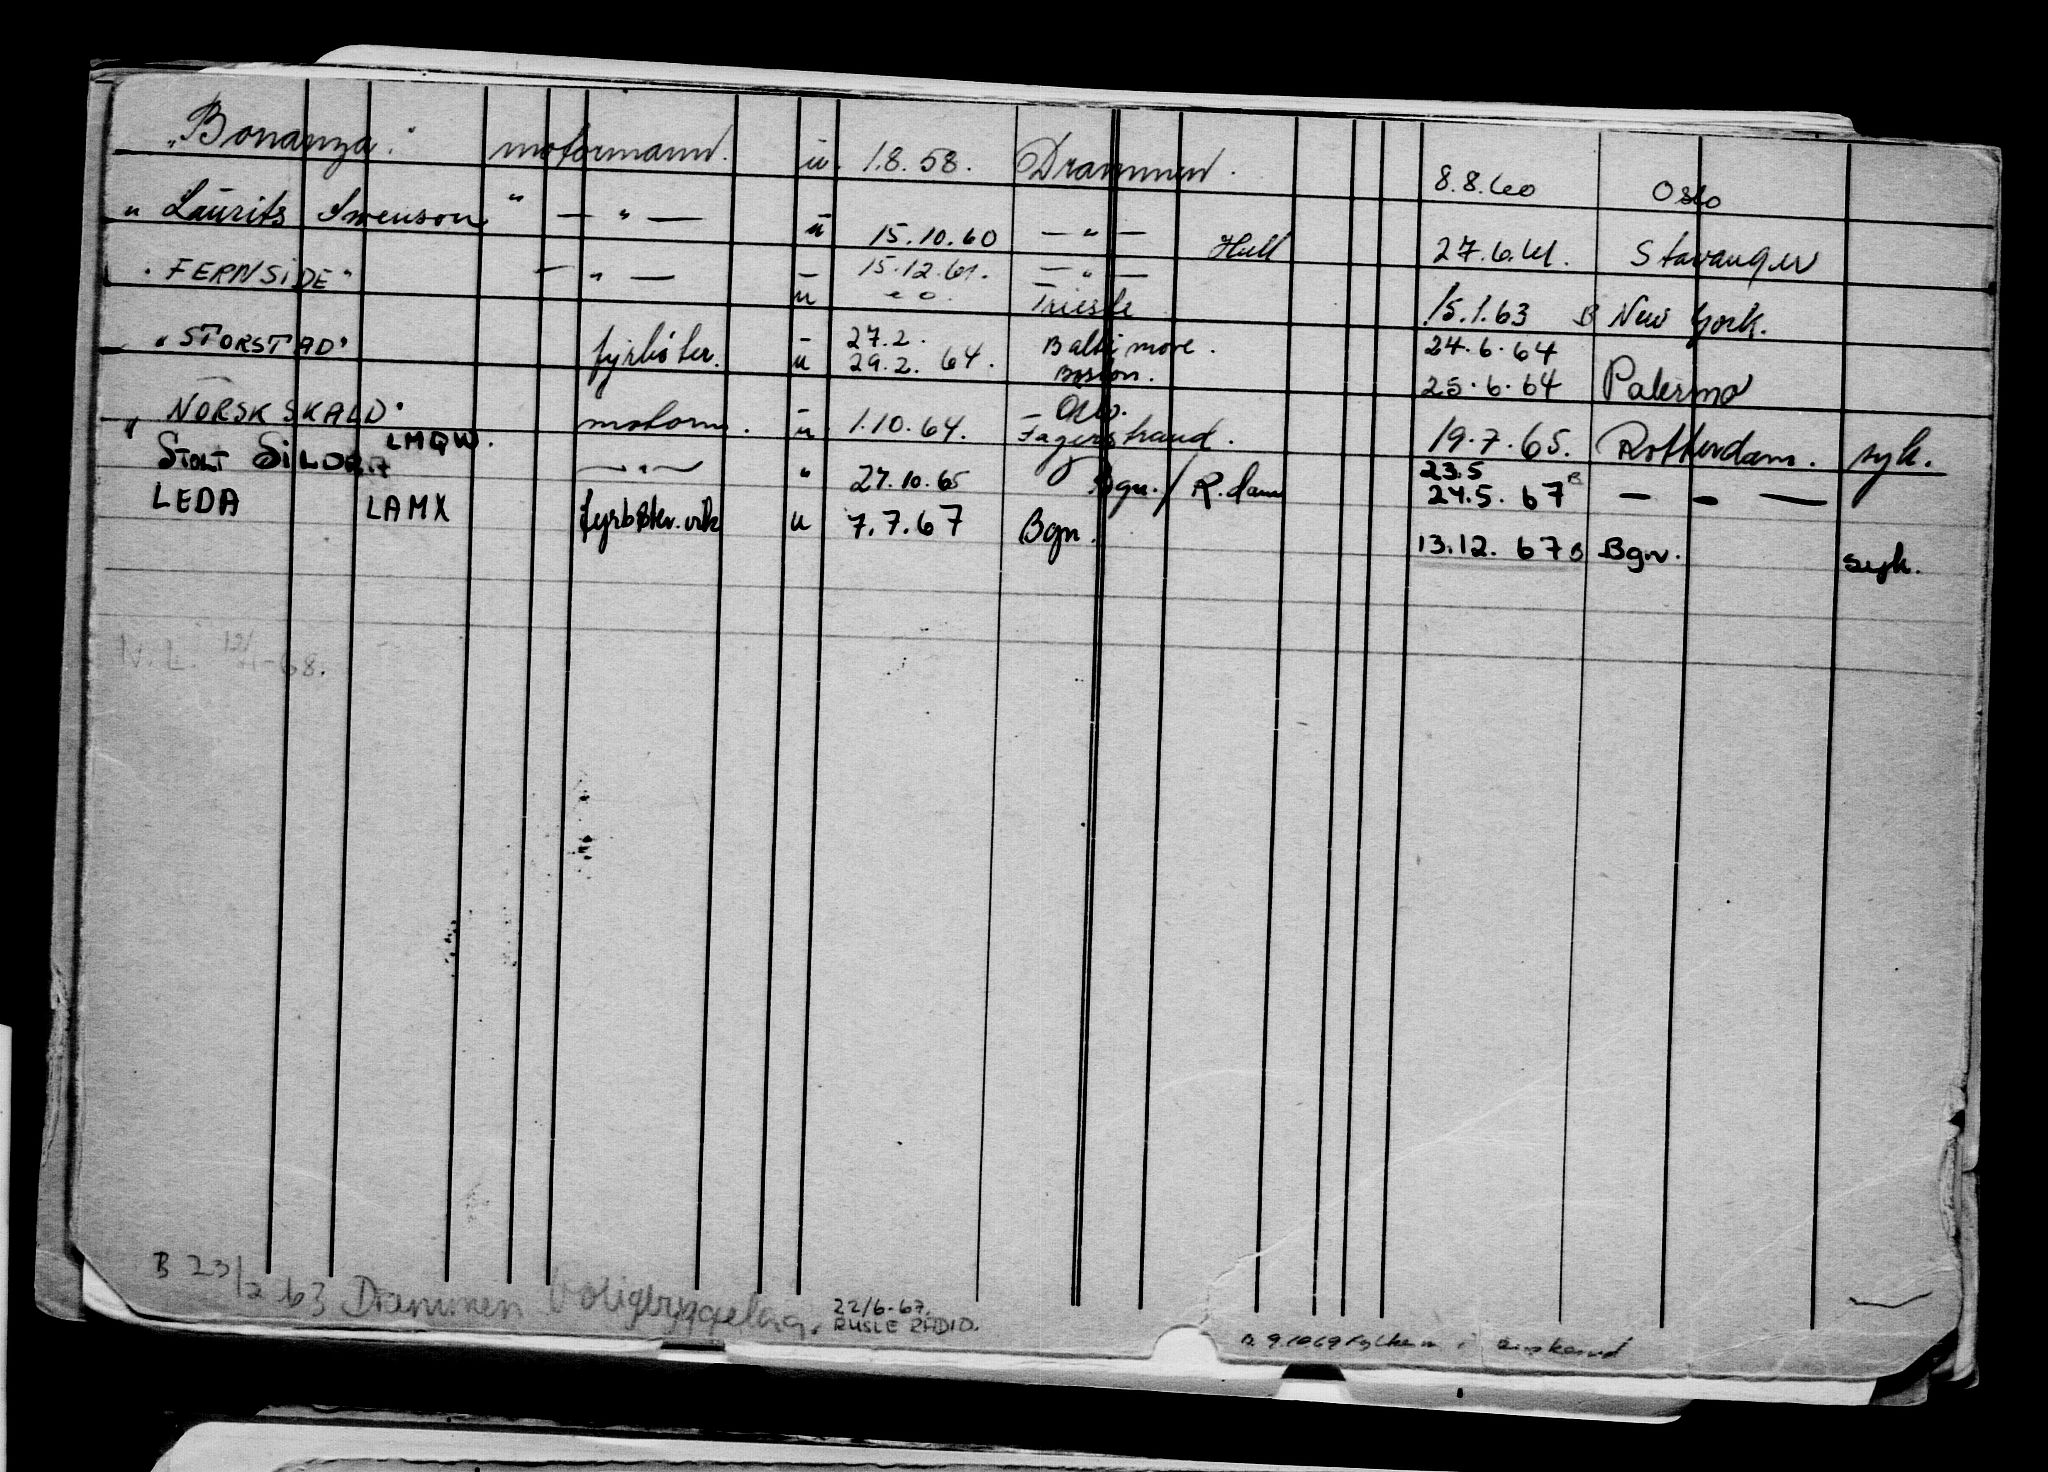 "Bonanza" motormann. u. 1.8.58. Drammen. 8.8.60 Oslo
" Laurits Swenson " — " — u 15.10.60 — " — Hull 27.6.61. Stavanger
"FERNSIDE" — " — u 15.12.61. — " — Trieste 15.1.63 B New York.
"STORSTAD" fyrbøter. u 27.2. Baltimore. 24.6.64
29.2.64. Boston. 25.6.64 Palermo
" NORSK SKALD" motorm. u 1.10.64. Oslo. Fagerstrand. 19.7.65. Rotterdam. syk.
STOLT LMQW. — " — " 27.10.65 Bgn./R.dam 23.5
24.5.67 B — - —
LEDA LAMX fyrbøter. vik u 7.7.67 Bgn. 13.12.67 B Bgn. syk.
N.L. 12/1-68.
B 23/2 63 Drammen Boligbyggelag.
22/6-67.
RUSLE RADIO.
B. 9.10 69 Fylkesm i Buskerud